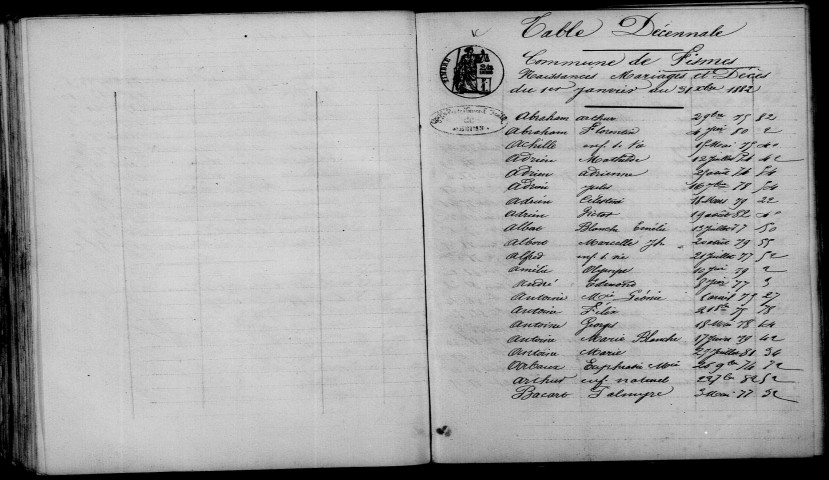 Table Décennale
Commune de Fismes
Naissances Mariages et Décès
du 1er janvier au 31 xbre 1882
TIMBRE
Abraham arthur 29bre 75 82
Abraham Florentin 4 Jer 80 2
Achille enf. s. vie 15 Mai 75 40
Adrien Mathilde 12 Juillet 74 42
Adrien adrienne 2 août 74 54
Adrien jules 16 7bre 78 54
Adrien Célestin 18 Mars 79 22
Adrien Victor 19 août 82 40
Albac Blanche Emilie 13 Juillet 77 50
Marcelle 2 août 79 55
Alfred enf. s. vie 21 Juillet 77 52
amélie Olympe 79 2
André Edmond 77 3
Antoine Mie Léonie 1 avril 75 27
Antoine Félix 75 78
Antoine Georges 18 Mai 78 44
Antoine Marie Blanche 17 79 42
Antoine Marie 27 Juillet 81 36
Euphrasie Mie 20 9bre 76 72
arthur enf naturel 22 7bre 82 52
Bacart Palmyre 3 Mai 77 32